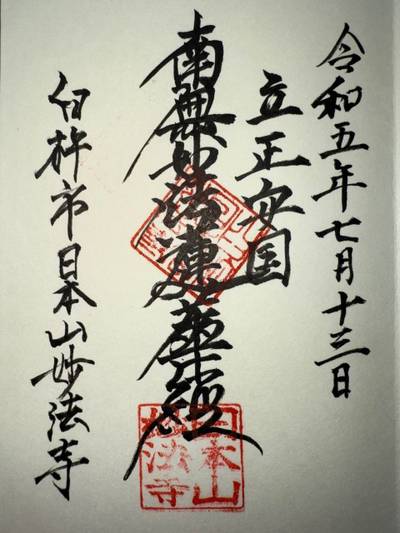 令和五年七月十三日
立正安国
南無妙法蓮華経
臼杵市日本山妙法寺
日本山
妙法寺